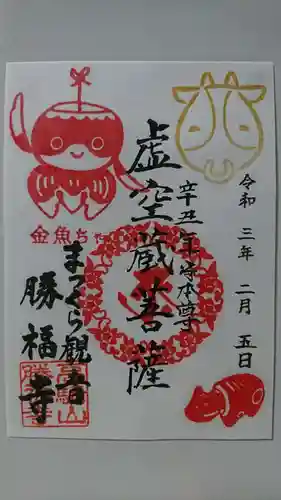 令和三年二月五日
辛丑年守本尊
虚空蔵菩薩
金魚ちゃ
まくら観音
勝福寺